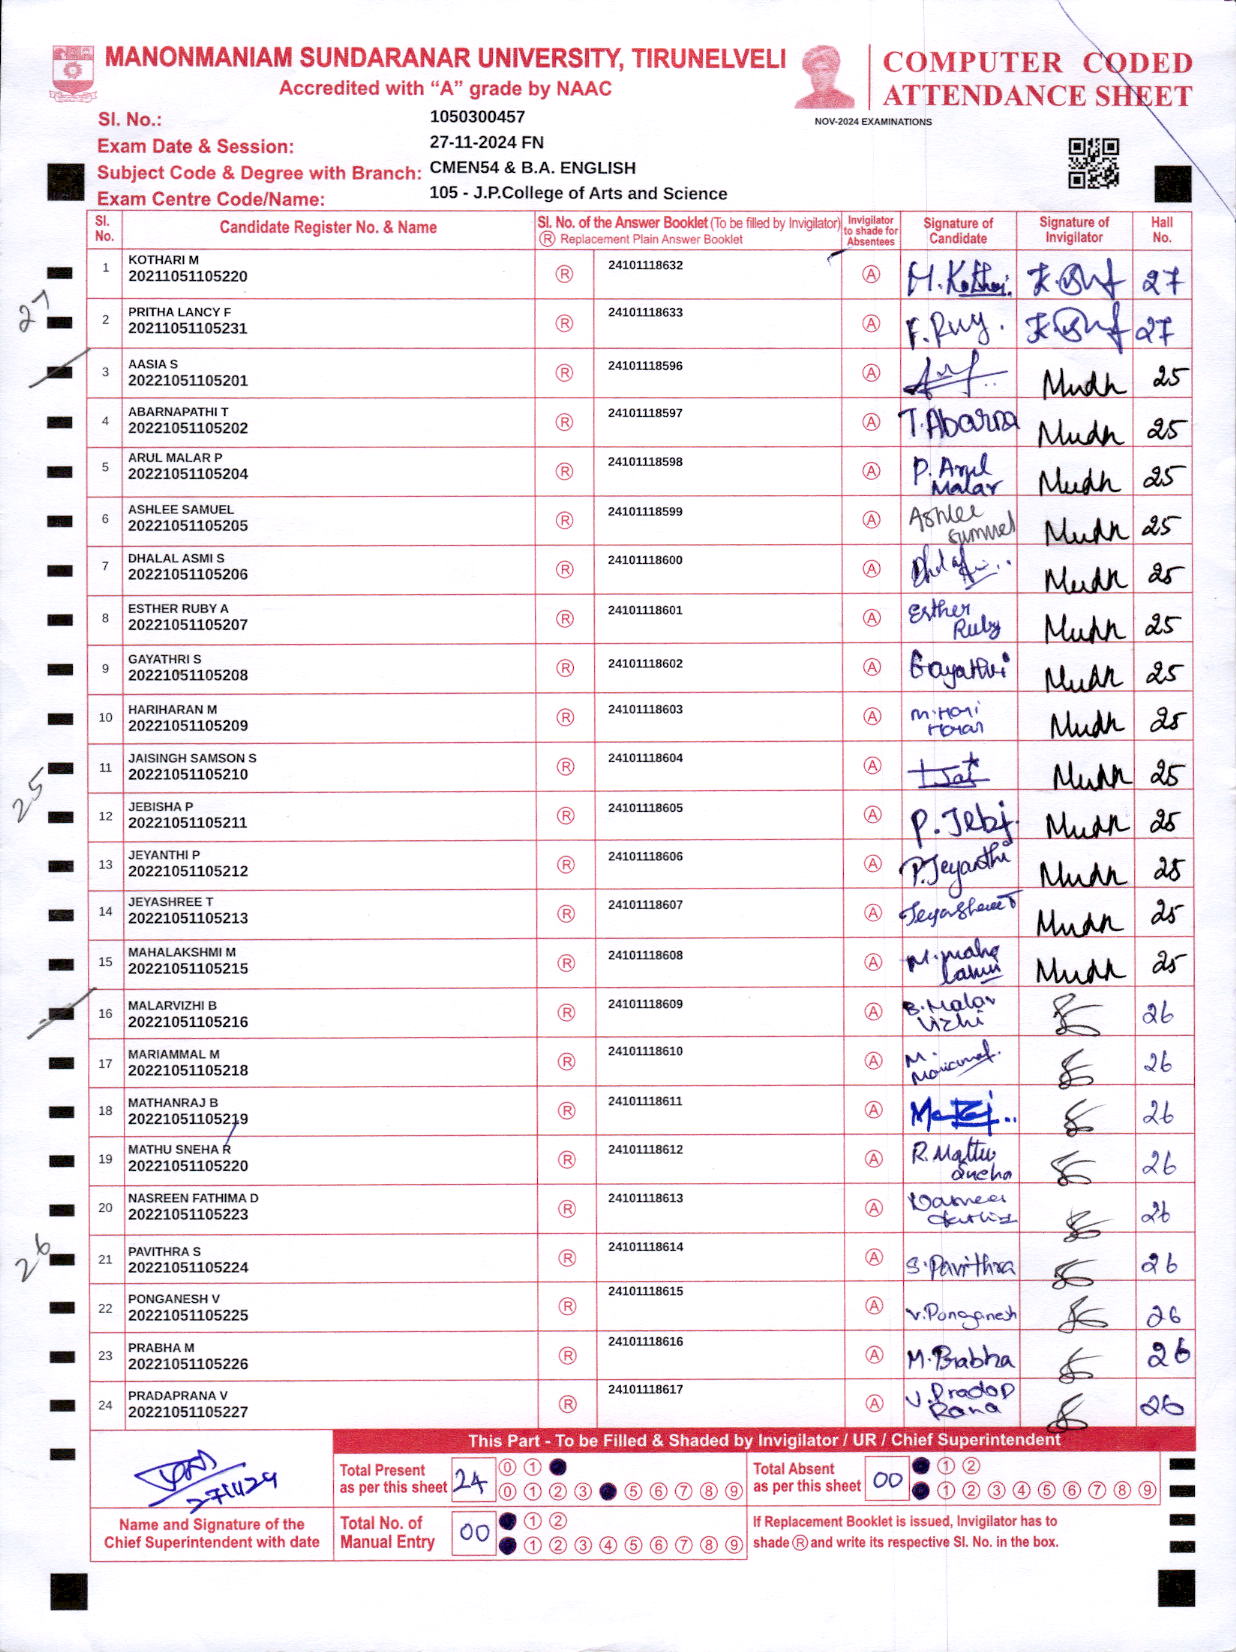 MANONMANIAM SUNDARANAR UNIVERSITY, TIRUNELVELI
Accredited with “A” grade by NAAC
COMPUTER CODED
ATTENDANCE SHEET
NOV-2024 EXAMINATIONS
Sl. No.: 1050300457
Exam Date & Session: 27-11-2024 FN
Subject Code & Degree with Branch: CMEN54 & B.A. ENGLISH
Exam Centre Code/Name: 105 - J.P.College of Arts and Science
Sl. No. Candidate Register No. & Name Sl. No. of the Answer Booklet (To be filled by Invigilator) Ⓡ Replacement Plain Answer Booklet Invigilator to shade for Absentees Signature of Candidate Signature of Invigilator Hall No.
27
25
26
1 KOTHARI M 20211051105220 Ⓡ 24101118632 Ⓐ M.Kothari 27
2 PRITHA LANCY F 20211051105231 Ⓡ 24101118633 Ⓐ 27
3 AASIA S 20221051105201 Ⓡ 24101118596 Ⓐ Mudh 25
4 ABARNAPATHI T 20221051105202 Ⓡ 24101118597 Ⓐ T.Abarna Mudh 25
5 ARUL MALAR P 20221051105204 Ⓡ 24101118598 Ⓐ P. Arul Malar Mudh 25
6 ASHLEE SAMUEL 20221051105205 Ⓡ 24101118599 Ⓐ Ashlee Mudh 25
7 DHALAL ASMI S 20221051105206 Ⓡ 24101118600 Ⓐ Mudh 25
8 ESTHER RUBY A 20221051105207 Ⓡ 24101118601 Ⓐ Esther Ruby Mudh 25
9 GAYATHRI S 20221051105208 Ⓡ 24101118602 Ⓐ Gayathri Mudh 25
10 HARIHARAN M 20221051105209 Ⓡ 24101118603 Ⓐ M.Hari Haran Mudh 25
11 JAISINGH SAMSON S 20221051105210 Ⓡ 24101118604 Ⓐ Mudh 25
12 JEBISHA P 20221051105211 Ⓡ 24101118605 Ⓐ P.Jebi Mudh 25
13 JEYANTHI P 20221051105212 Ⓡ 24101118606 Ⓐ P.Jeyanthi Mudh 25
14 JEYASHREE T 20221051105213 Ⓡ 24101118607 Ⓐ Jeyashree T Mudh 25
15 MAHALAKSHMI M 20221051105215 Ⓡ 24101118608 Ⓐ M.maha Mudh 25
16 MALARVIZHI B 20221051105216 Ⓡ 24101118609 Ⓐ B.Malar Vizhi 26
17 MARIAMMAL M 20221051105218 Ⓡ 24101118610 Ⓐ 26
18 MATHANRAJ B 20221051105219 Ⓡ 24101118611 Ⓐ 26
19 MATHU SNEHA R 20221051105220 Ⓡ 24101118612 Ⓐ R.Mathu Sneha 26
20 NASREEN FATHIMA D 20221051105223 Ⓡ 24101118613 Ⓐ 26
21 PAVITHRA S 20221051105224 Ⓡ 24101118614 Ⓐ S.Pavithra 26
22 PONGANESH V 20221051105225 Ⓡ 24101118615 Ⓐ V.Ponganesh 26
23 PRABHA M 20221051105226 Ⓡ 24101118616 Ⓐ M.Prabha 26
24 PRADAPRANA V 20221051105227 Ⓡ 24101118617 Ⓐ V.Pradap Rana 26
This Part - To be Filled & Shaded by Invigilator / UR / Chief Superintendent
Total Present as per this sheet 24 ⓪ ① ⓪ ① ② ③ ⑤ ⑥ ⑦ ⑧ ⑨
Total Absent as per this sheet 00 ① ② ① ② ③ ④ ⑤ ⑥ ⑦ ⑧ ⑨
Name and Signature of the Chief Superintendent with date
Total No. of Manual Entry 00 ① ② ① ② ③ ④ ⑤ ⑥ ⑦ ⑧ ⑨
If Replacement Booklet is issued, Invigilator has to
shade Ⓡ and write its respective Sl. No. in the box.